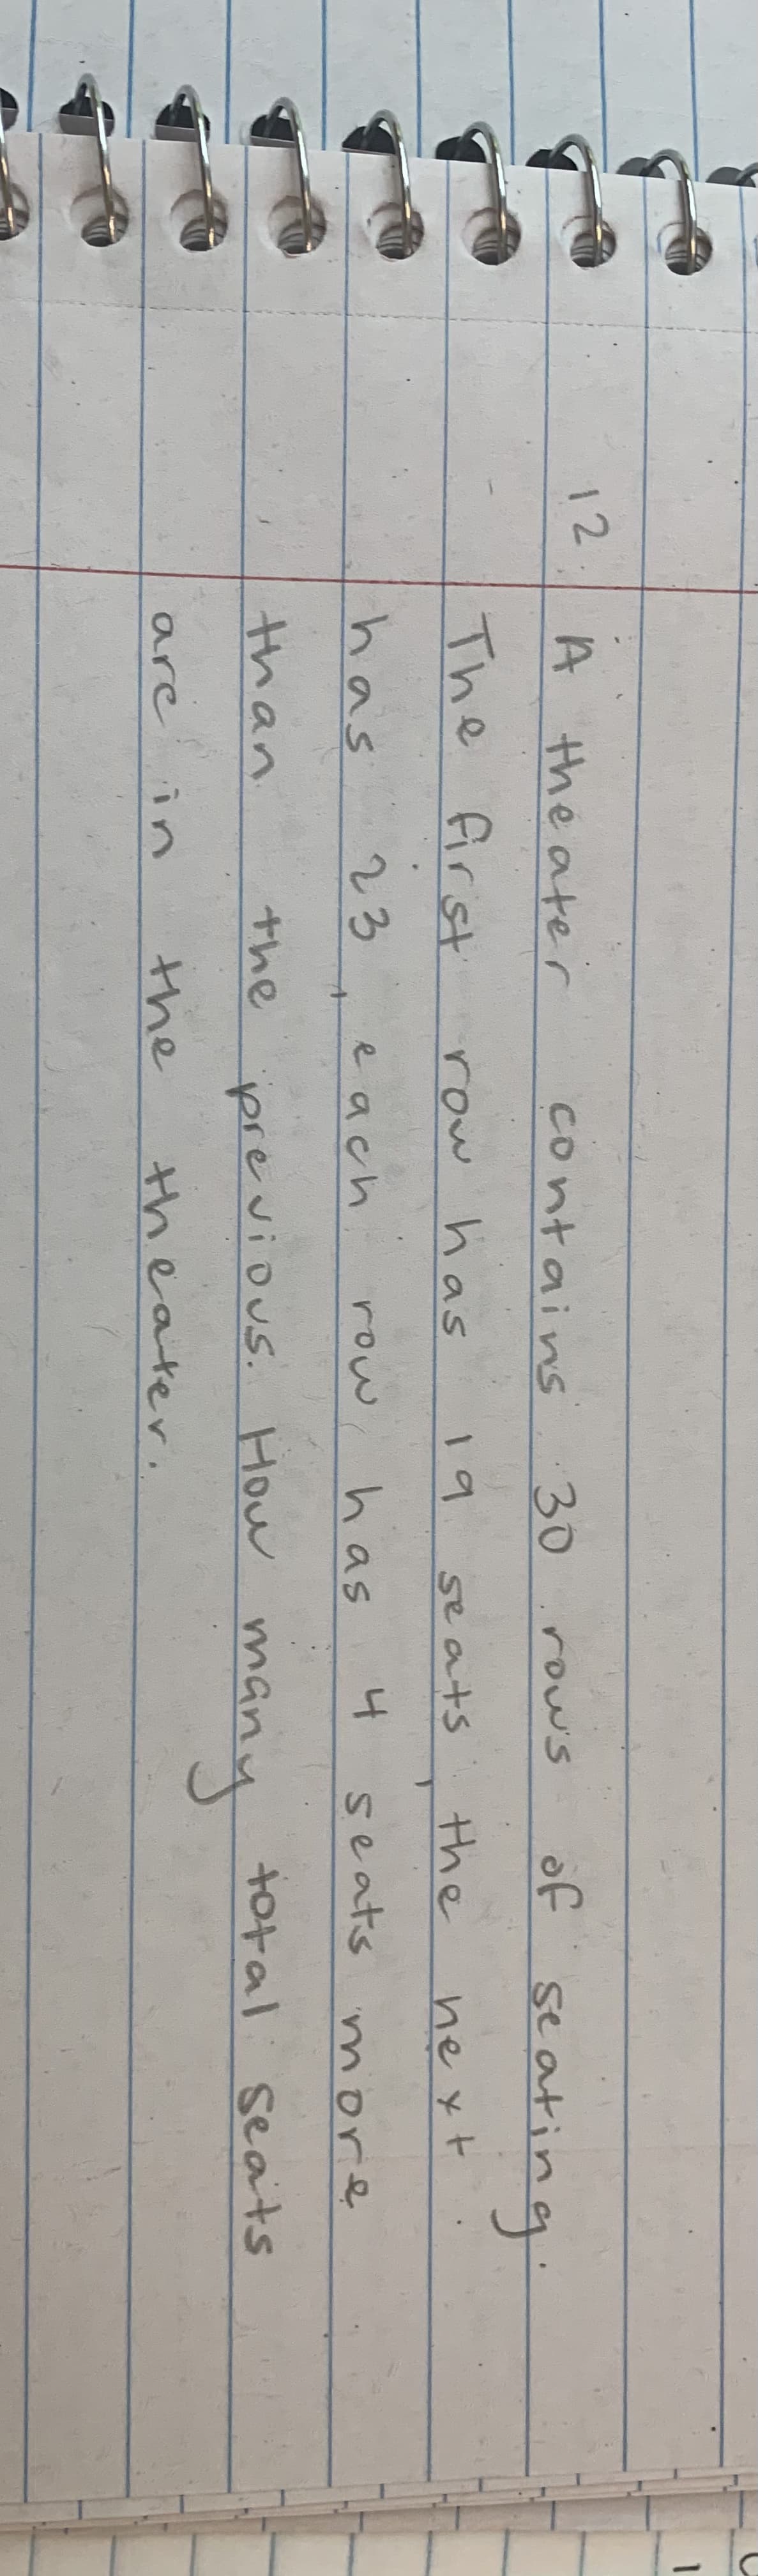 12. A theater contains 30 rows of seating.
The first row has 19 seats, the next
has 23, each row has 4 seats more
than the previous. How many total seats
are in the theater.